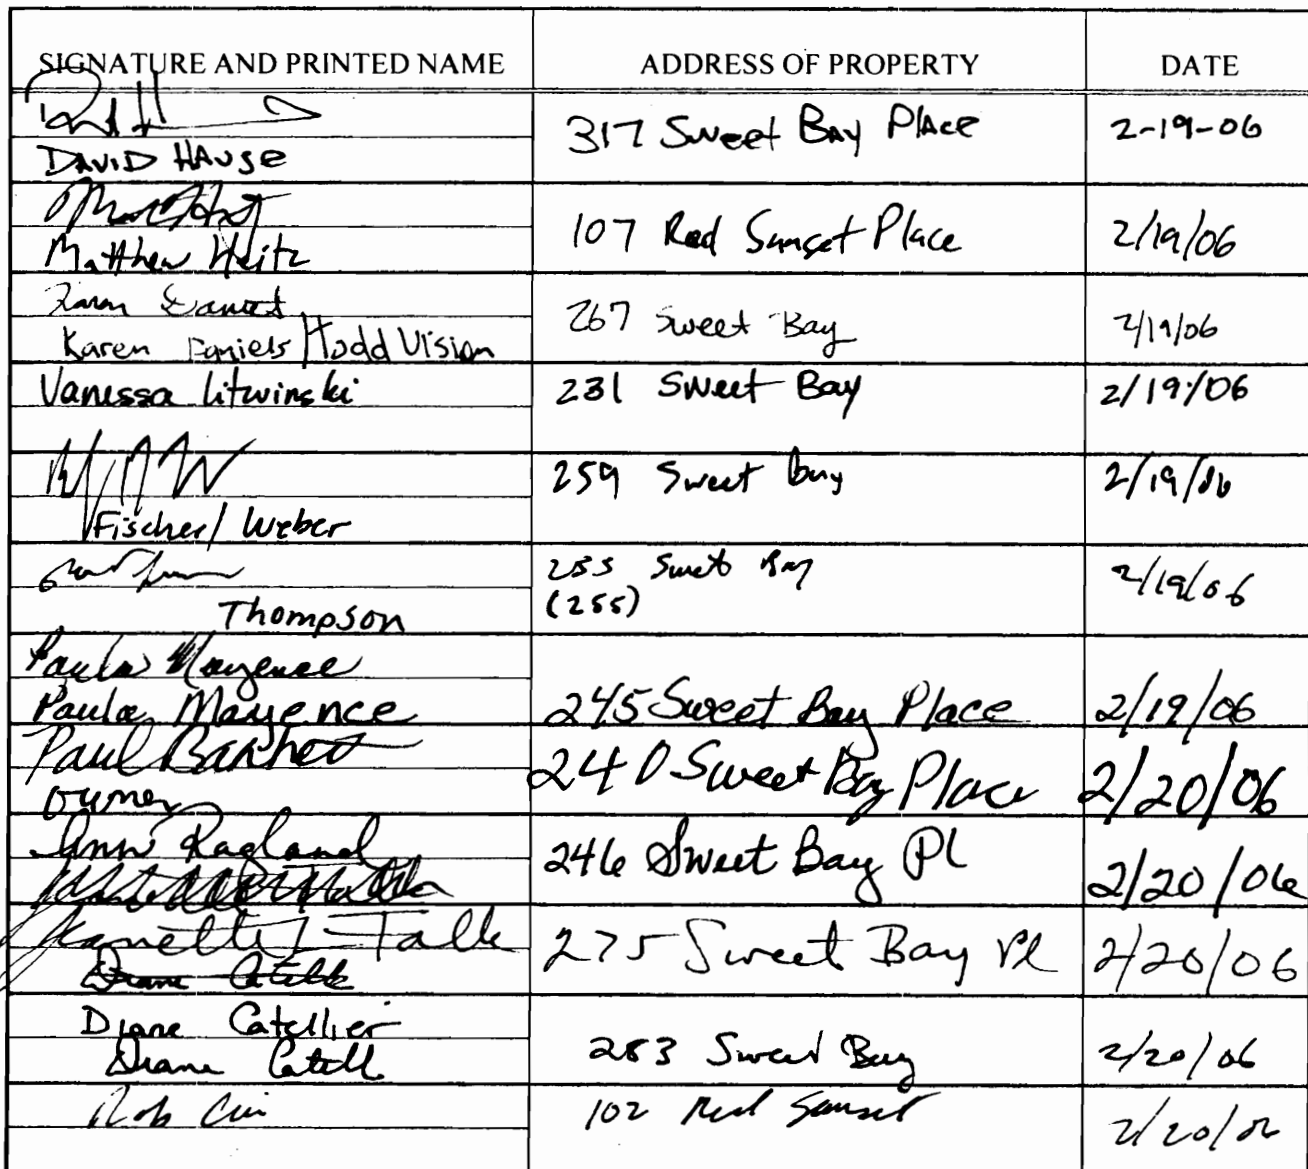 SIGNATURE AND PRINTED NAME ADDRESS OF PROPERTY DATE
DAVID HAUSE 317 Sweet Bay Place 2-19-06
Matthew Heitz 107 Red Sunset Place 2/19/06
Karen Daniels / Todd Vision 267 Sweet Bay 2/19/06
Vanessa Litwinski 231 Sweet Bay 2/19/06
259 Sweet bay 2/19/06
Fischer/ Weber
Sweet Bay 2/19/06
(255)
Thompson
Paula Mayence
Paula Mayence 245 Sweet Bay Place 2/19/06
Paul Barnett 240 Sweet Bay Place 2/20/06
owner
Ann Ragland 246 Sweet Bay Pl 2/20/06
Jeanette L Falk 275 Sweet Bay Pl 2/20/06
Diane Catellier
Diane 283 Sweet Bay 2/20/06
Rob 102 Red Sunset 2/20/06